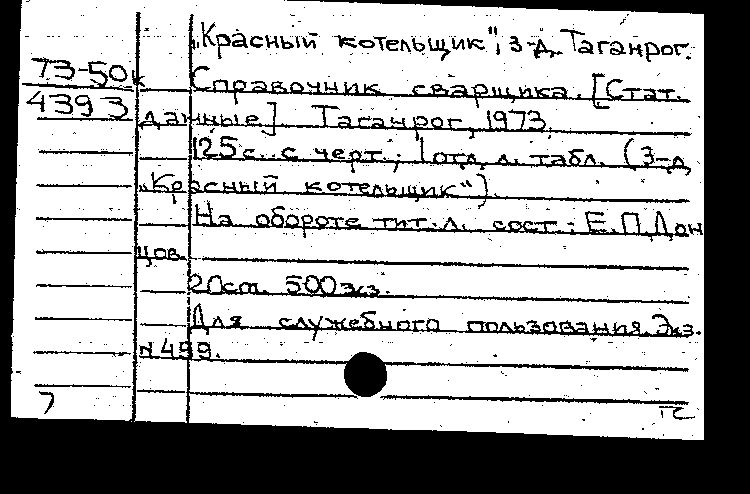 „Красный котельщик", з-д. Таганрог.
73-50к
4393
Справочник сварщика. [Стат.
данные]. Таганрог, 1973.
125 с. с черт.; 1 отд. л. табл. (З-д
„Красный котельщик").
На обороте тит. л. сост.: Е.П. Дон
цов
20 см. 500 экз.
Для служебного пользования. Экз.
№ 499.
7